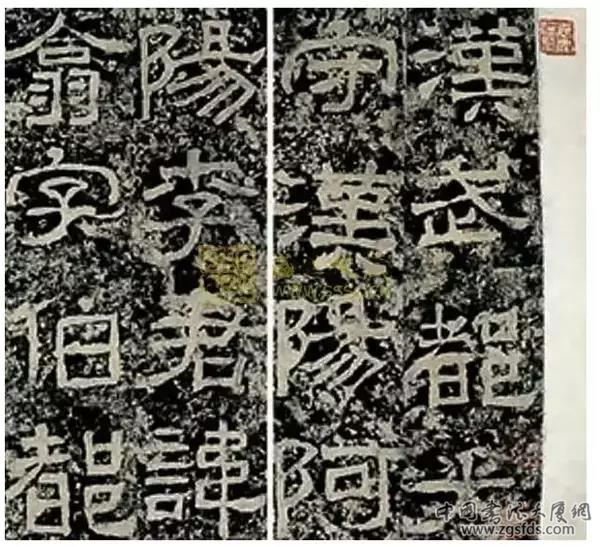 漢武都太
守漢陽阿
陽李君諱
翕字伯都
中国书法大厦网
www.zgsfds.com